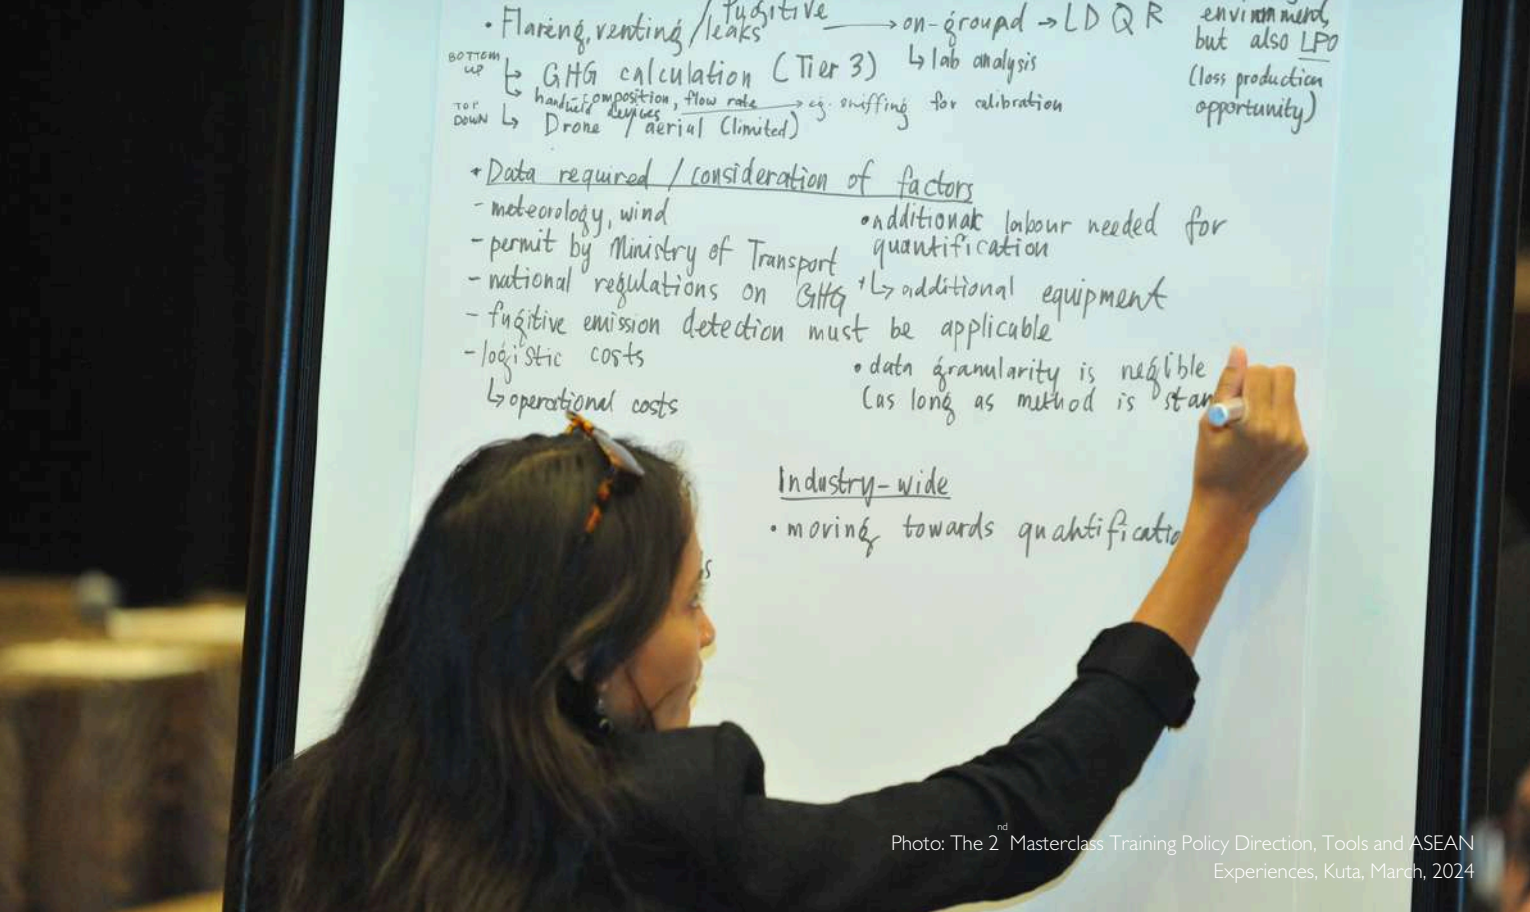 • Flaring, venting / fugitive leaks → on-ground → L D Q R
↳ lab analysis
BOTTOM UP ↳ GHG calculation (Tier 3)
↳ handheld devices composition, flow rate → eg. sniffing for calibration
TOP DOWN ↳ Drone / aerial (limited)
environment,
but also LPO
(loss production
opportunity)
* Data required / consideration of factors
- meteorology, wind
- permit by Ministry of Transport
- national regulations on GHG
- fugitive emission detection must be applicable
- logistic costs
↳ operational costs
• additional labour needed for
quantification
+ ↳ additional equipment
• data granularity is neglible
(as long as method is stan
Industry-wide
• moving towards quantificatio
Photo: The 2nd Masterclass Training Policy Direction, Tools and ASEAN
Experiences, Kuta, March, 2024